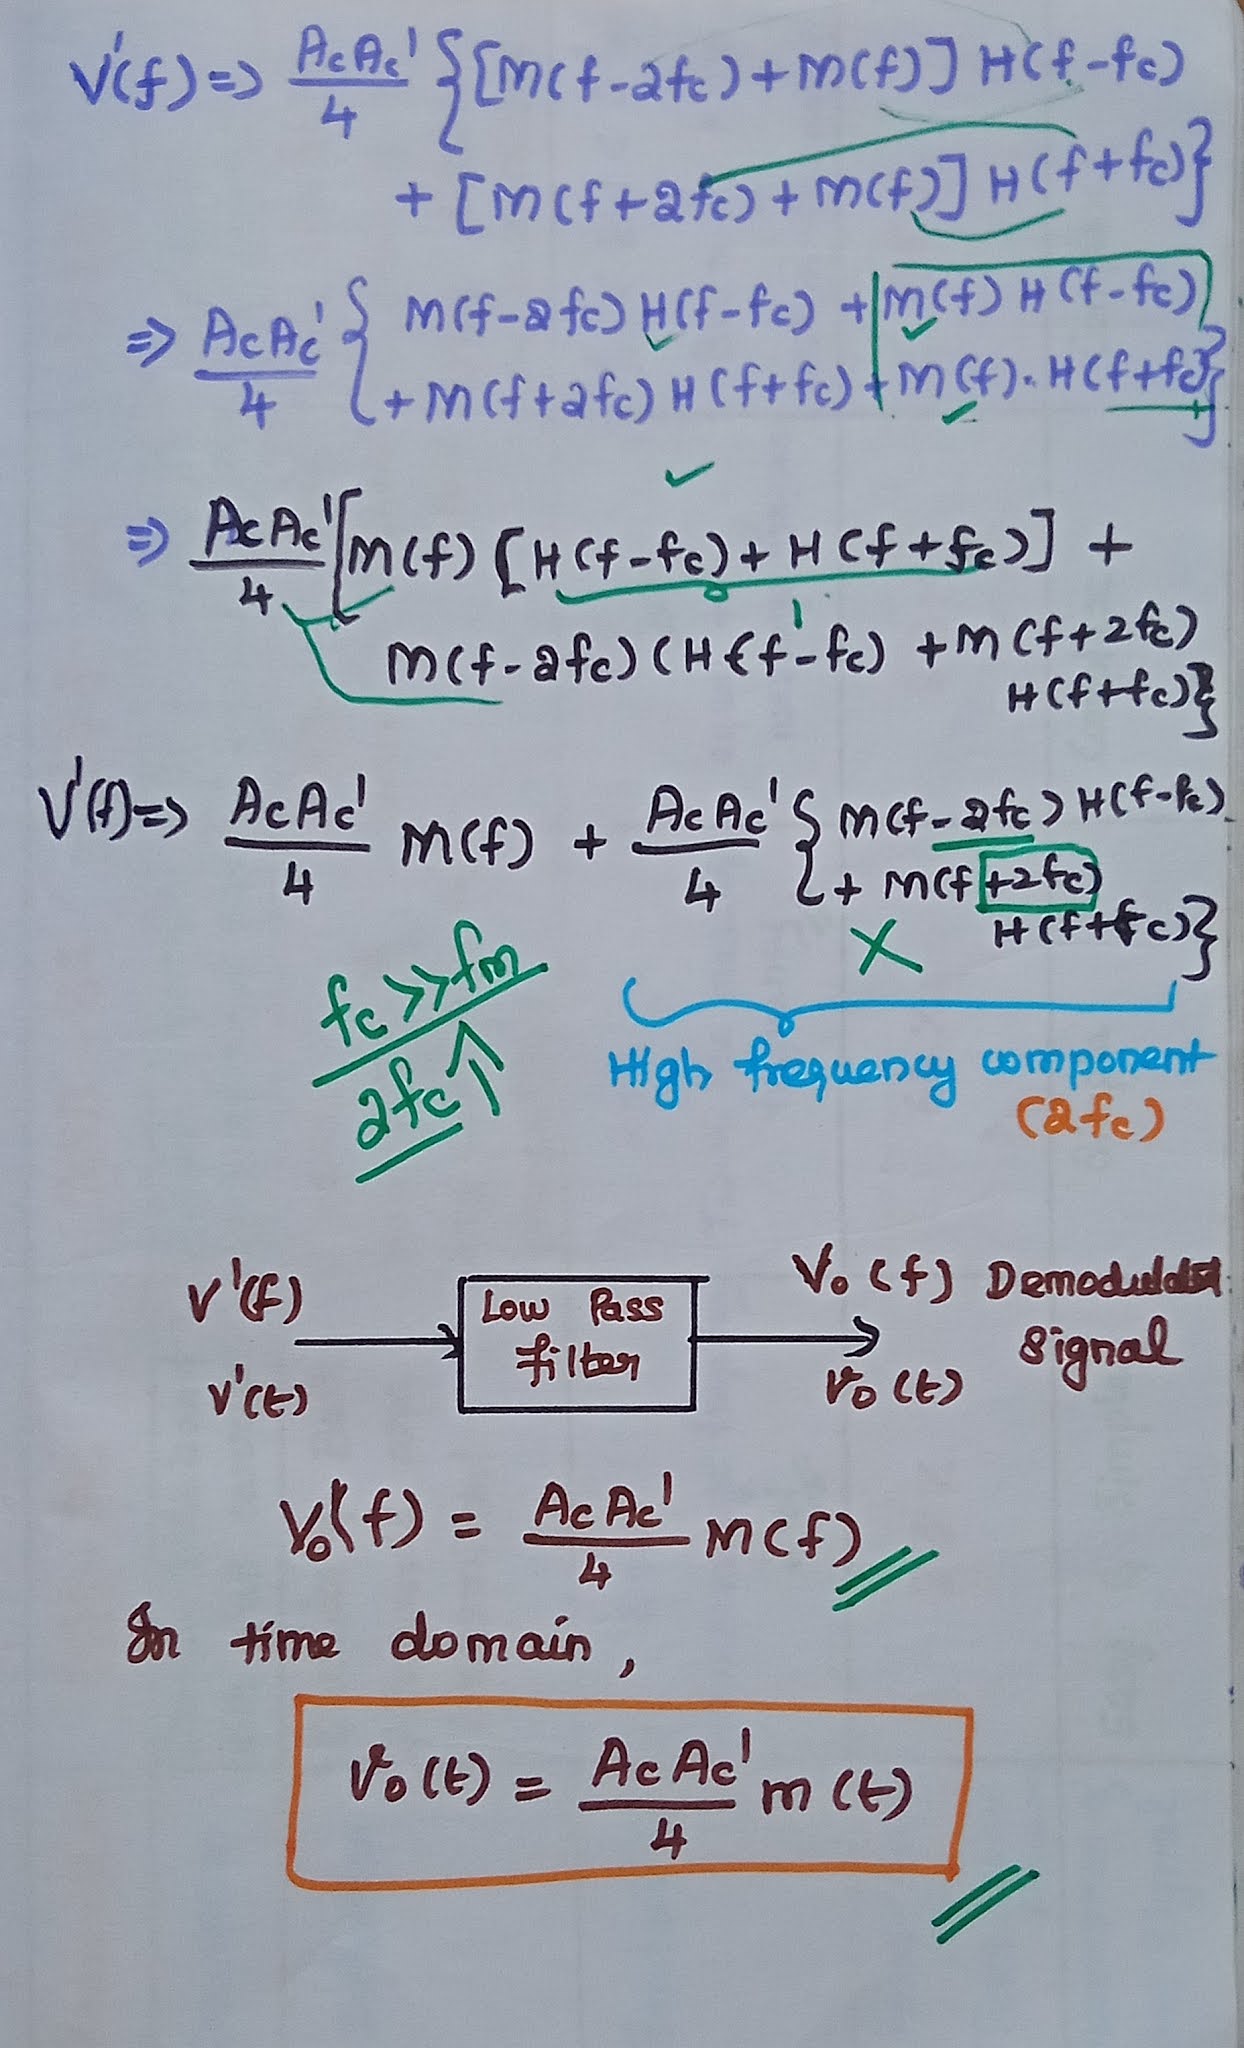 V'(f) => AcAc'/4 {[M(f-2fc)+M(f)] H(f-fc)
+ [M(f+2fc)+M(f)] H(f+fc)}
=> AcAc'/4 { M(f-2fc) H(f-fc) + M(f) H(f-fc)
+ M(f+2fc) H(f+fc) + M(f). H(f+fc)}
=> AcAc'/4 [M(f) [H(f-fc) + H(f+fc)] +
M(f-2fc) (H(f-fc) + M(f+2fc)
H(f+fc)}
1
V'(f) => AcAc'/4 M(f) + AcAc'/4 { M(f-2fc) H(f-fc)
+ M(f+2fc)
H(f+fc)}
X
fc >> fm
2fc ↑
High frequency component
(2fc)
V'(f)
V'(t)
Low Pass
filter
Vo(f) Demodulated
vo(t) signal
Vo(f) = AcAc'/4 M(f)
In time domain,
vo(t) = AcAc'/4 m(t)